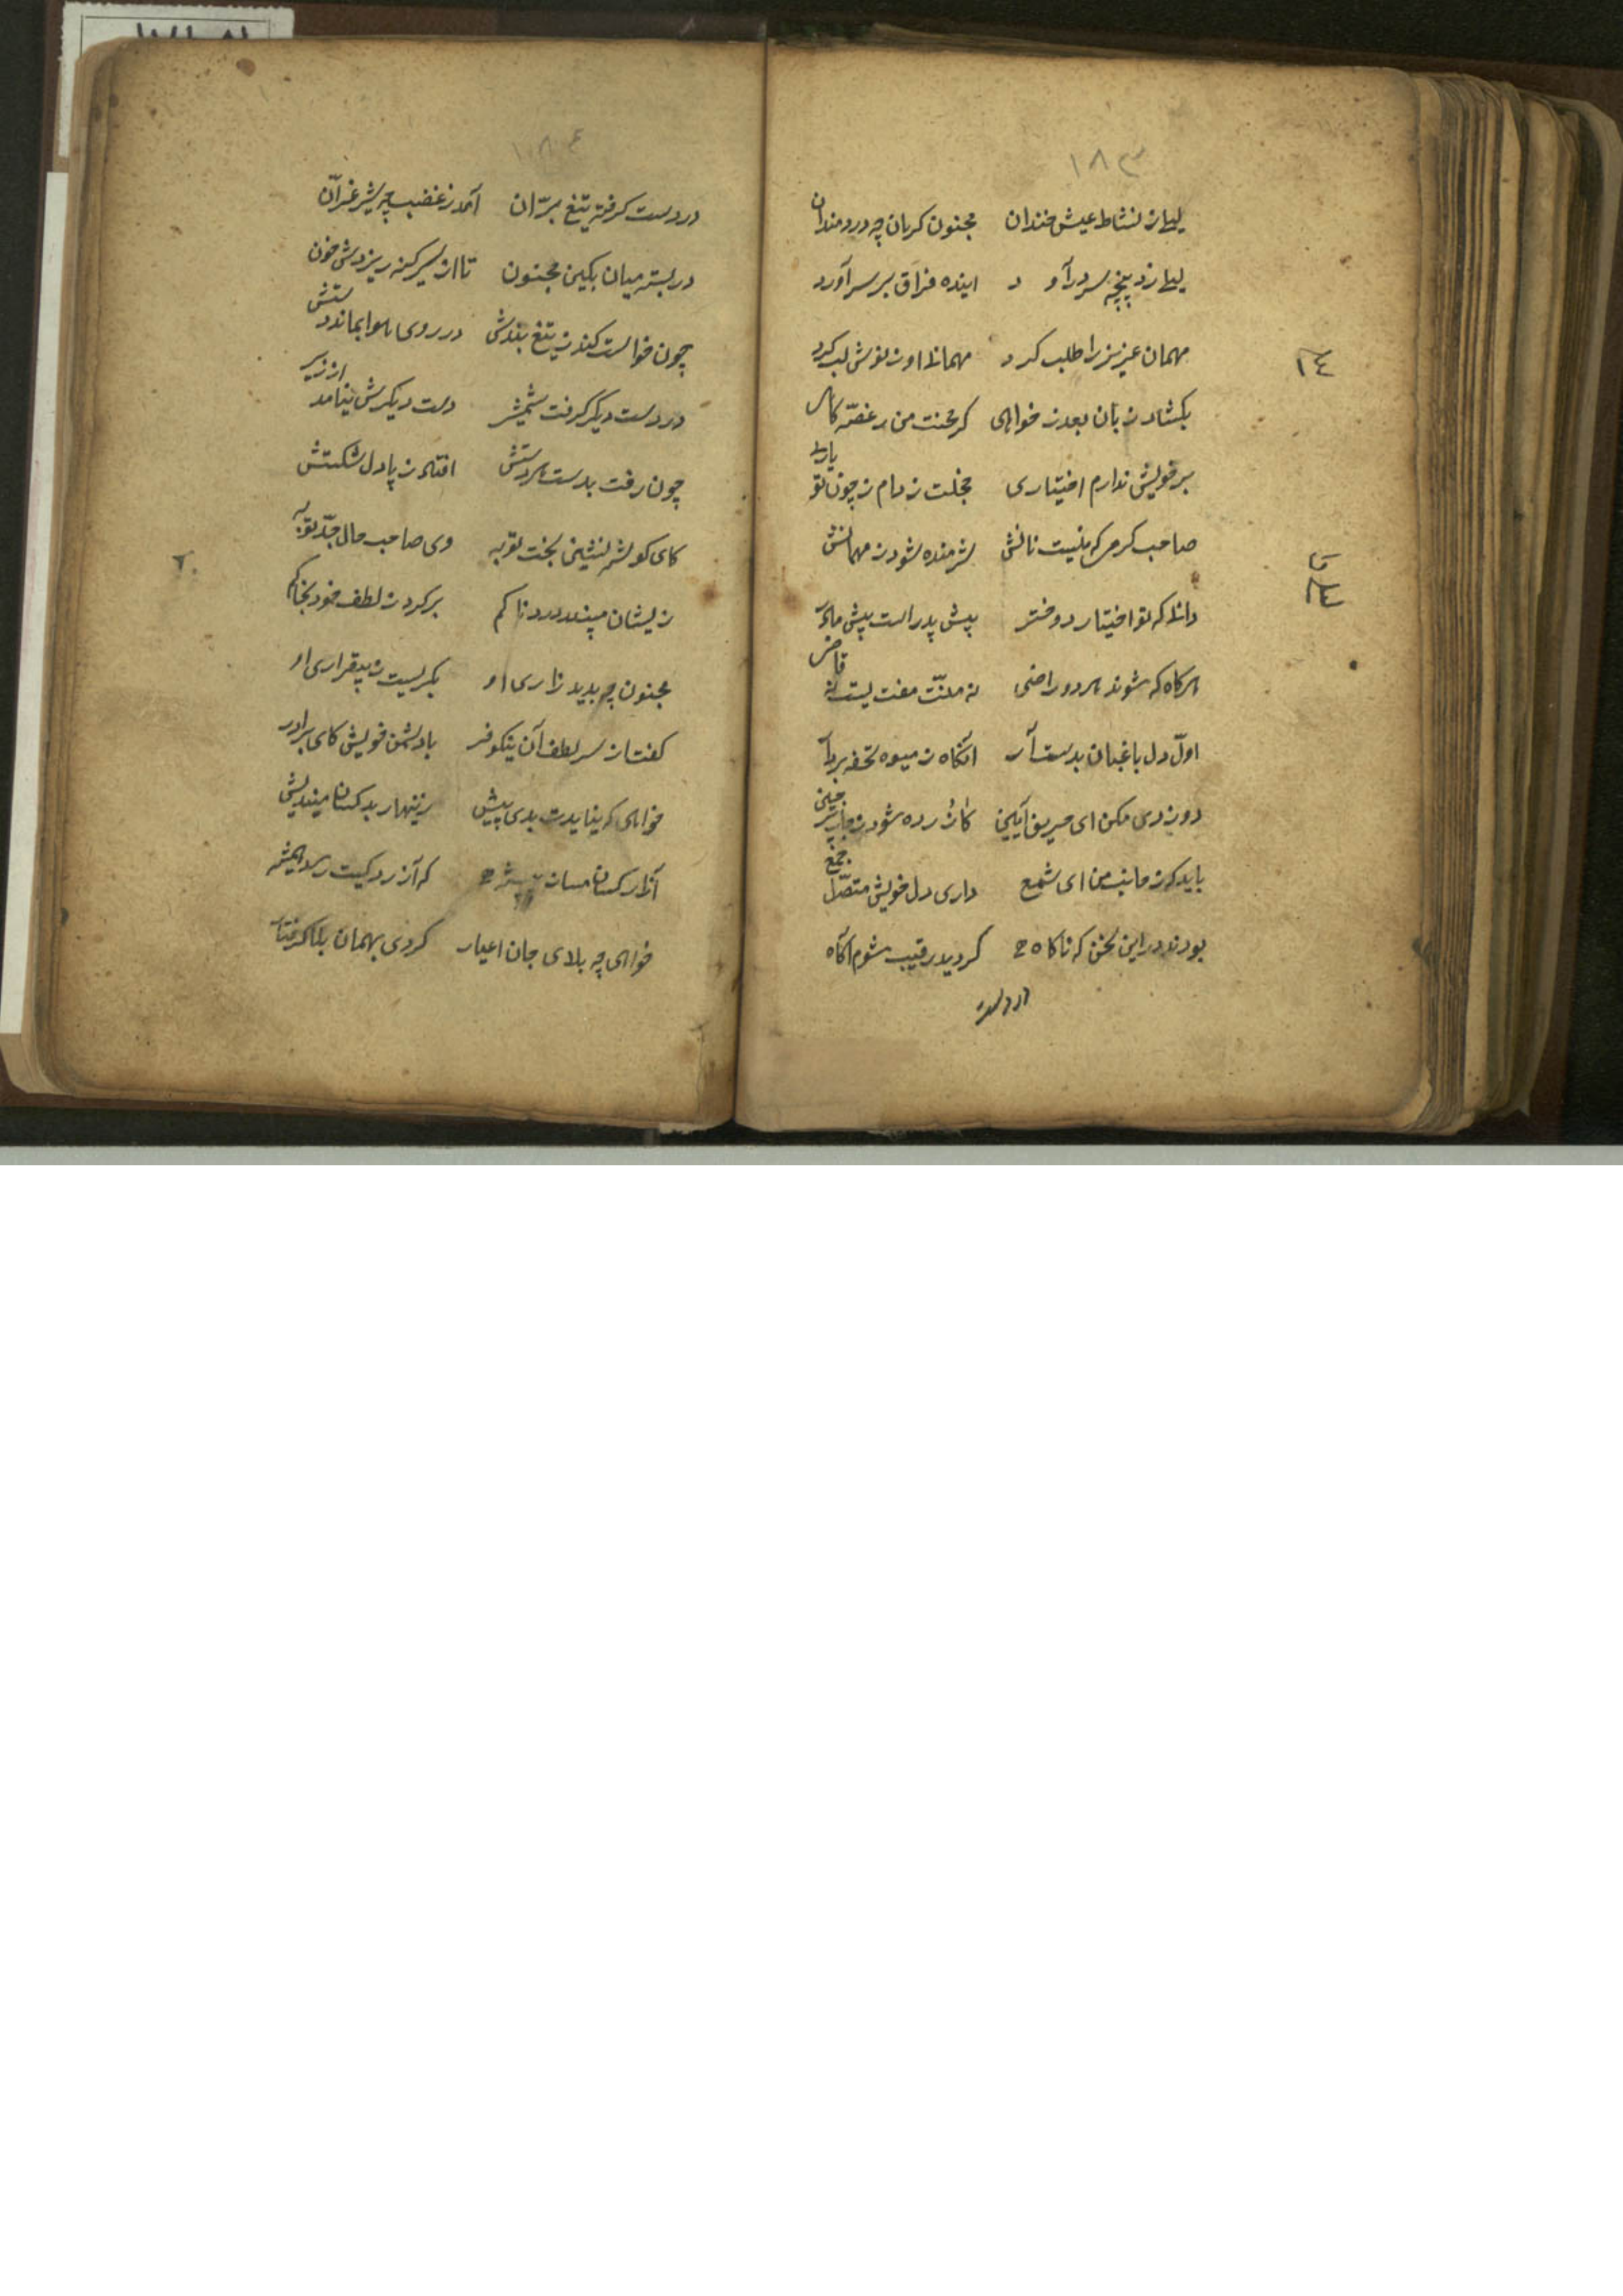 ۱۸۳
لیلی ز نشاط عیش خندان مجنون کریان چه دردمندان
لیلی ز دریچه سر درآورد اینده فراق بر سر آورد
مهمان عزیز را طلب کرد مهمانی او ز نوش لب کرد
۱۴
بکشاد زبان بعذر خواهی کز محنت من ز غصه کاهی
بر خویش ندارم اختیاری خجلت زده‌ام ز چون تو یاری
صاحب کرم که نیست نانش شرمنده شود ز مهمانش
دانی که تو اختیار دختر پیش پدر است پیش مادر
هرکاه که شوند هر دو راضی نه منّت مفت نیست نه قاضی
اوّل دل باغبان بدست آر انکاه ز میوه تحفه بردار
دوزدی مکن ای حریف آیین کازرده شود
باید که ز جانب من ای شمع داری دل خویش متصّل جمع
بودند در این سخن که ناکاه کردید رقیب شوم آکاه
در دست
۱۸۴
در دست کرفته تیغ برّان آمد ز غضب چه شیر غرّان
در بسته میان بکین مجنون تا از سر کینه ریزدش خون
چون خواست کند ز تیغ بندش در روی هوا بماند دستش
در دست دیکر کرفت شمشیر دست دیکرش نیامد از زیر
چون رفت بدست هر دو دستش افتاد ز پا دل شکستش
کای کوشه نشین بخت توبه وی صاحب حال جدّ توبه
۲۰
زیشان مپسند دردناکم برکرد ز لطف خود بخاکم
مجنون چه بدید زاری او بکریست ز بیقراری او
کفتا ز سر لطف آن نیکوفر با دشمن خویش کای برادر
خواهی که نیایدت بدی پیش زینهار بد کسان میندیش
آزار کسان مساز پیشه که آزردکیت رسد همیشه
خواهی چه بلای جان اغیار کردی بهمان بلا کرفتار